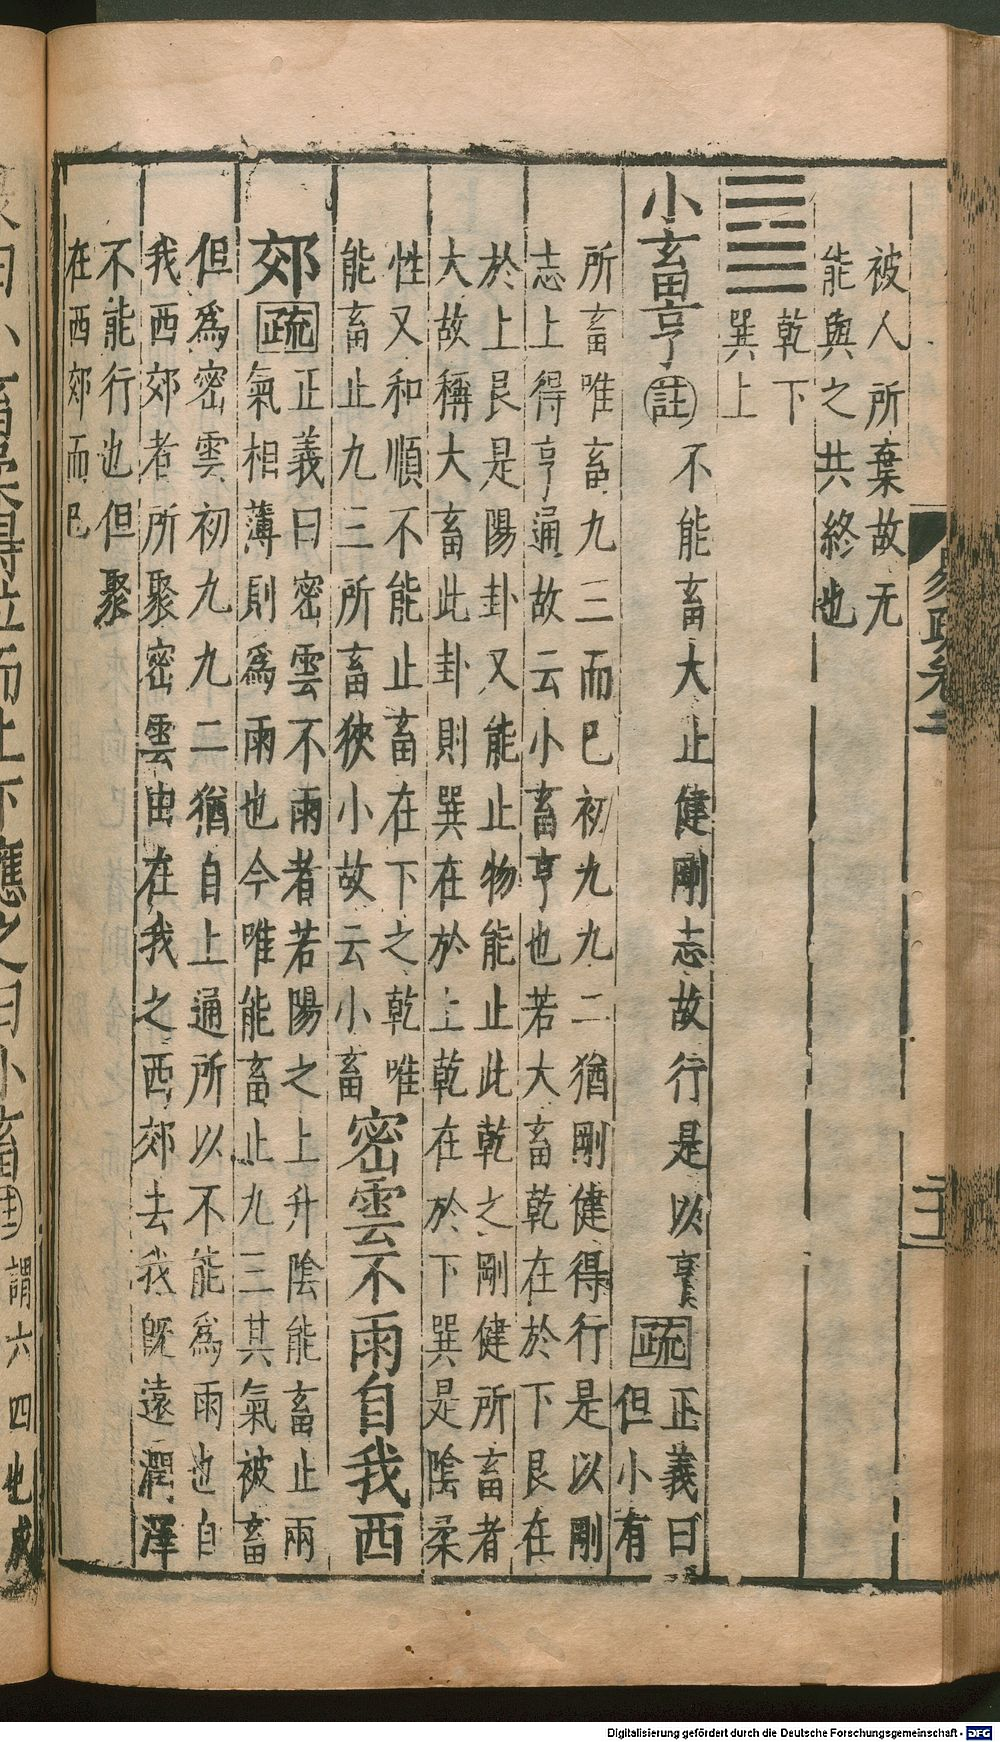 易疏卷二
二十一
被人所棄故无
能與之共終也
乾下
巽上
小畜亨註不能畜大止健剛志故行是以亨疏正義曰
但小有
所畜唯畜九三而已初九九二猶剛健得行是以剛
志上得亨通故云小畜亨也若大畜乾在於下艮在
於上艮是陽卦又能止物能止此乾之剛健所畜者
大故稱大畜此卦則巽在於上乾在於下巽是陰柔
性又和順不能止畜在下之乾唯
能畜止九三所畜狹小故云小畜
密雲不雨自我西
郊疏正義曰密雲不雨者若陽之上升陰能畜止兩
氣相薄則爲雨也今唯能畜止九三其氣被畜
但爲密雲初九九二猶自上通所以不能爲雨也自
我西郊者所聚密雲由在我之西郊去我旣遠潤澤
不能行也但聚
在西郊而已
而上下應之曰小畜註謂六四也成
Digitalisierung gefördert durch die Deutsche Forschungsgemeinschaft - DFG